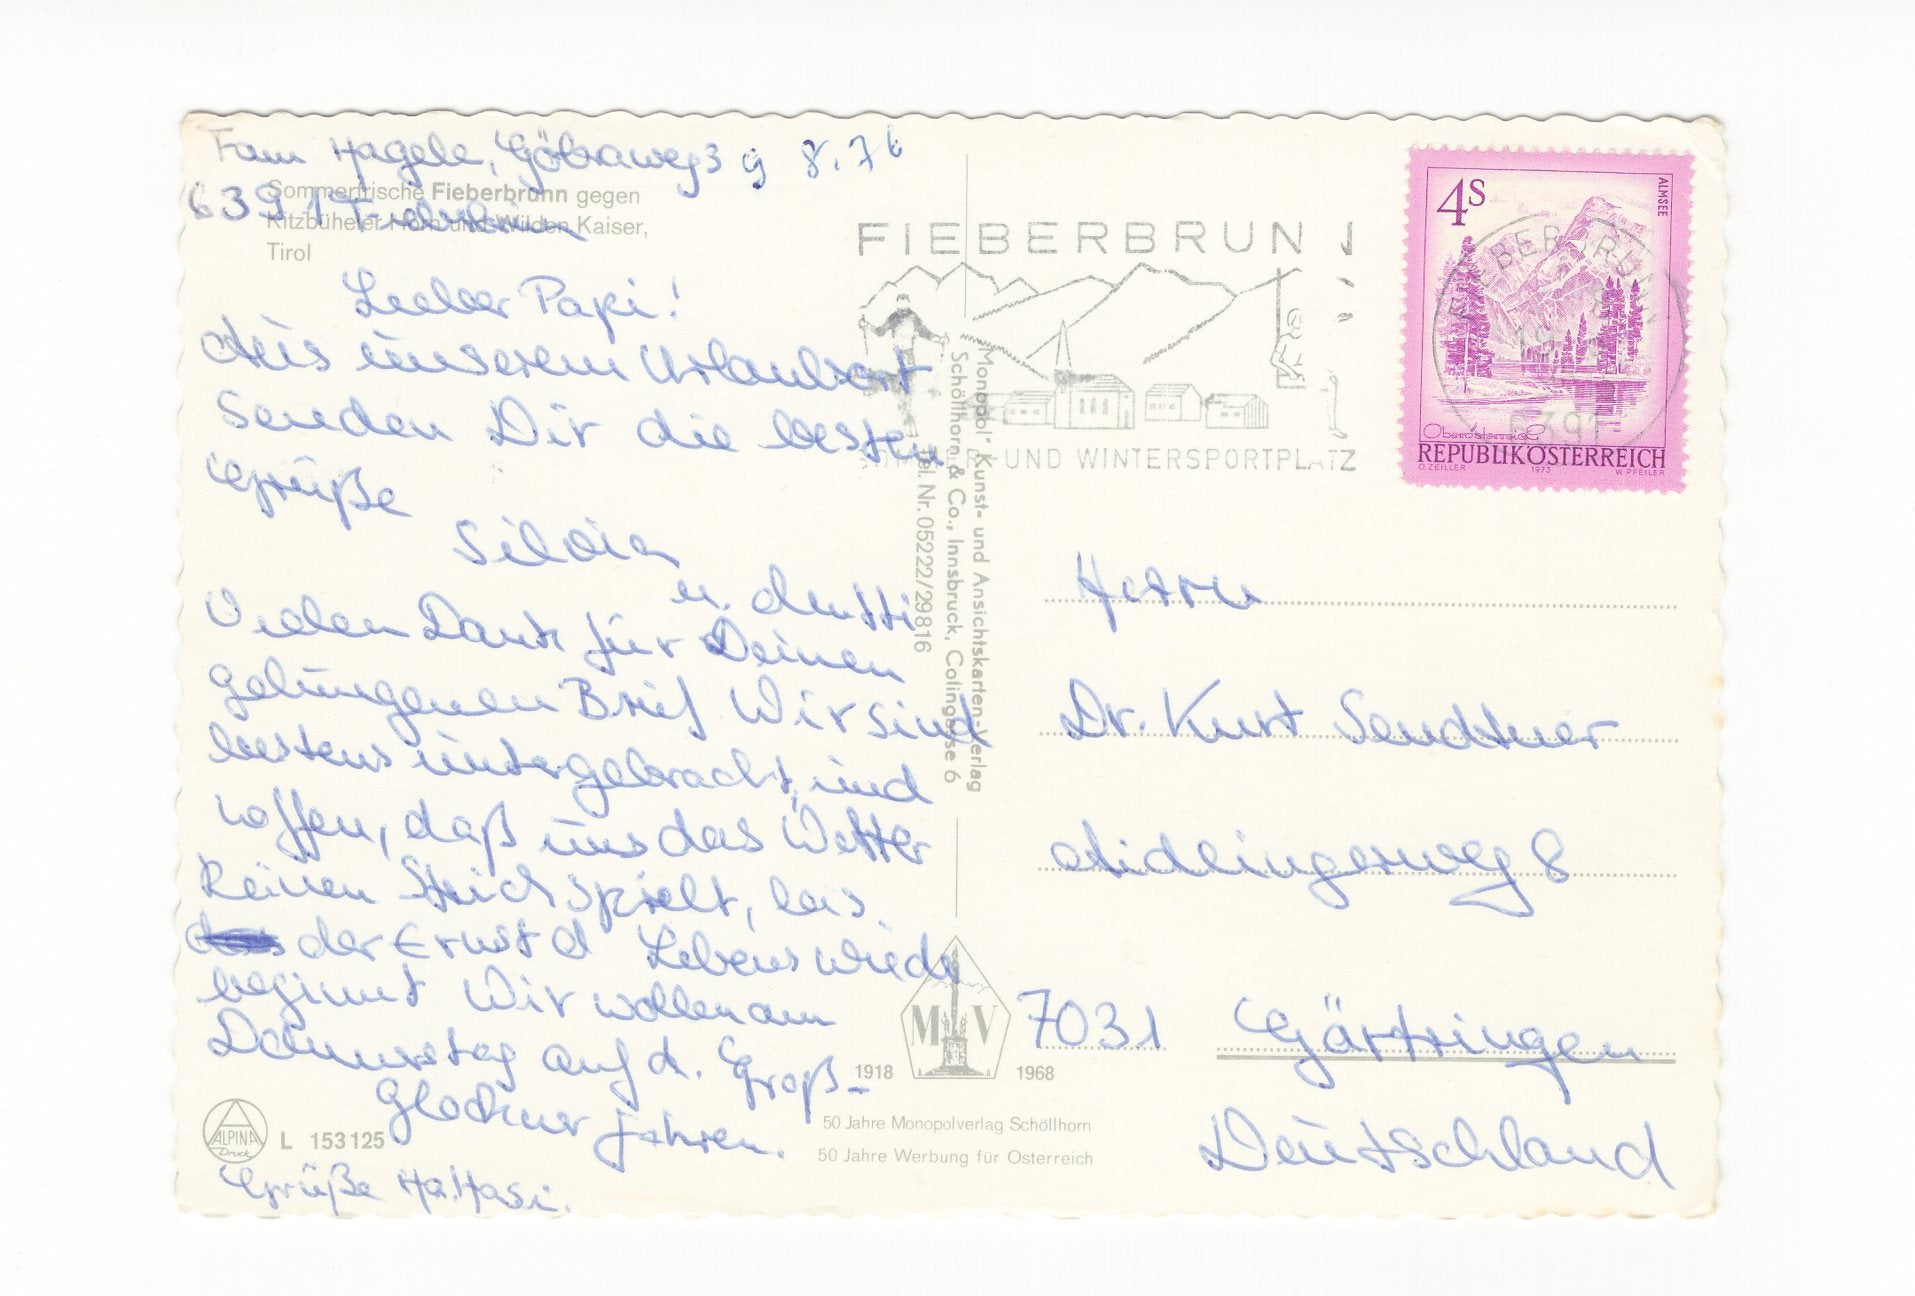 Fam Hagele, Göbraweg 3 9 8.76
6391 Fieberbrunn
Sommerfrische Fieberbrunn gegen
Kitzbüheler Horn und Wilden Kaiser,
Tirol
Lieber Papi!
Aus unserem Urlaubsort
senden Dir die besten
Grüße
Silvia
u. Mutti
Vielen Dank für Deinen
gelungenen Brief Wir sind
bestens untergebracht, und
hoffen, daß uns das Wetter
keinen Streich spielt, bis
der Ernst d Lebens wieder
beginnt Wir wollen am
Donnerstag auf d. Groß-
glockner fahren.
Grüße
ALPINA
Druck
L 153125
„Monopol" Kunst- und Ansichtskarten-Verlag
Schöllhorn & Co., Innsbruck, Colingasse 6
Tel. Nr. 05222/29816
MV
1918 1968
50 Jahre Monopolverlag Schöllhorn
50 Jahre Werbung für Österreich
FIEBERBRUNN
SOMMER- UND WINTERSPORTPLATZ
4S
ALMSEE
FIEBERBRUNN
6391
Oberösterreich
REPUBLIK ÖSTERREICH
O. ZEILLER 1973 W. PFEILER
Herrn
Dr. Kurt Sendtner
Aidlingerweg 8
7031 Gärtringen
Deutschland